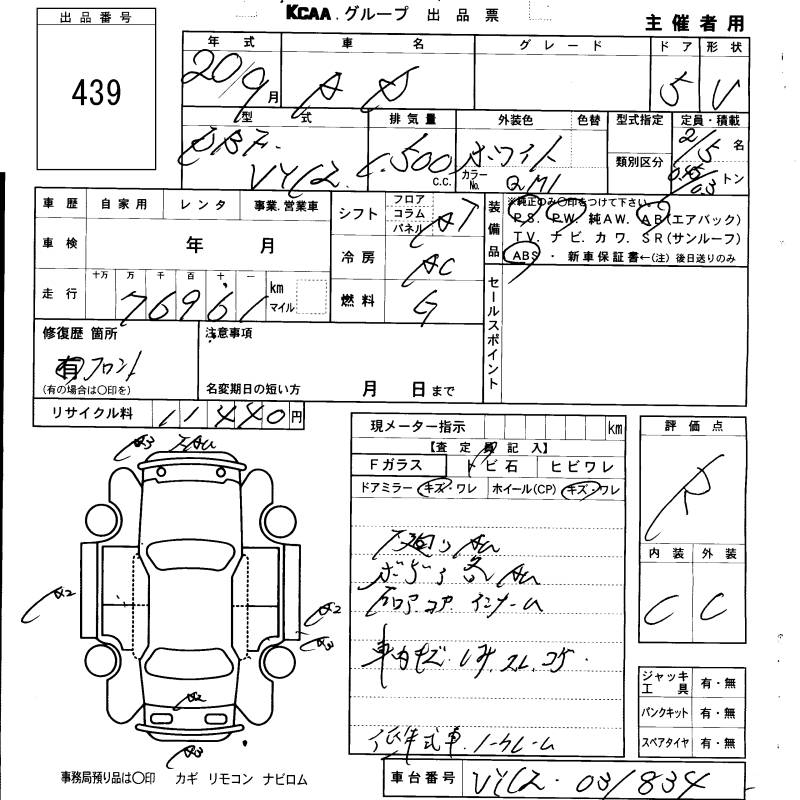 KCAA グループ 出品票
主催者用
出品番号
439
年式 車名 グレード ドア 形状
20/9月 AD 5 V
型式 排気量 外装色 色替 型式指定 定員・積載
DBF-
VY12 1,500 c.c. ホワイト カラーNo. QM1 類別区分 2/5名
トン
車歴 自家用 レンタ 事業.営業車
車検 年 月
走行 十万 万 千 百 十 一 km マイル
76961
シフト フロア コラム パネル AT
冷房 AC
燃料 G
装備品
※純正のみ〇印をつけて下さい。
P.S. P.W. 純A.W. A.B(エアバック)
T.V. ナビ. カワ. S.R(サンルーフ)
ABS ・ 新車保証書←(注) 後日送りのみ
セールスポイント
修復歴 箇所
有 フロント
(有の場合は〇印を)
注意事項
名変期日の短い方 月 日まで
リサイクル料 11440円
現メーター指示 km
【査定員記入】
Fガラス トビ石 ヒビワレ
ドアミラー キズ・ワレ ホイール(CP) キズ・ワレ
下廻り AU
ボディ各 AU
コア インナー
車内キズ. シミ. スレ. コゲ.
低年式車. ノークレーム
評価点
R
内装 外装
C C
A3
A2
A2
A3
A2
A3
ジャッキ 工具 有・無
パンクキット 有・無
スペアタイヤ 有・無
事務局預り品は〇印 カギ リモコン ナビロム
車台番号 VY12-031834